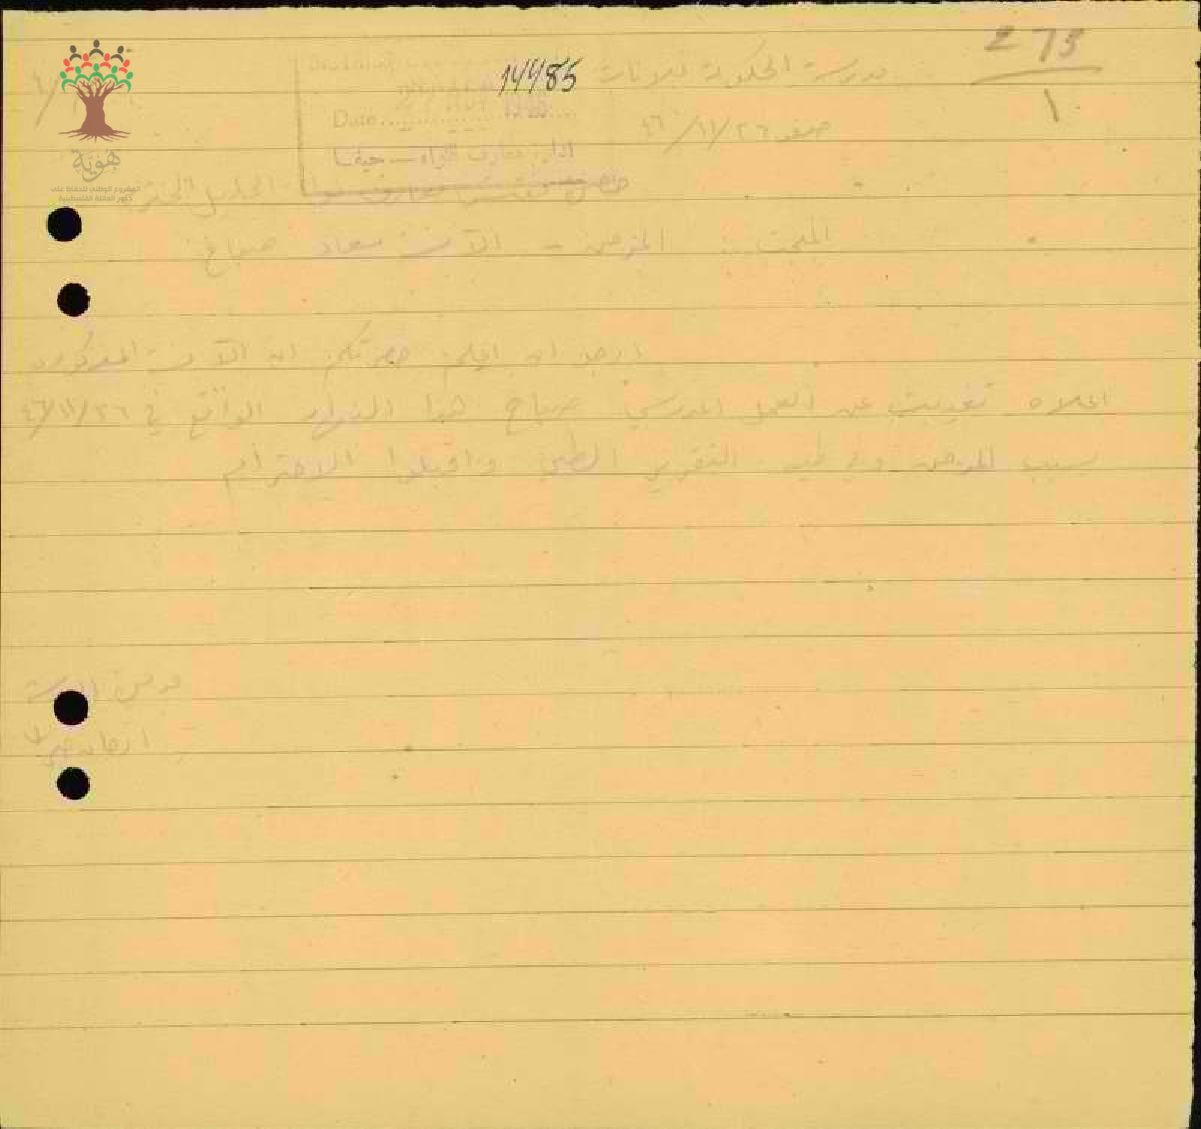 273
1
14485
مدرسة الحكومة للبنات
صفد ٢٦/١١/٤٦
Date
ادارة معارف اللواء - حيفا
حضرة مفتش معارف لواء الجليل المحترم
هوية
المبحث: المرض - الآنسة سعاد صباغ
ارجو ان اعلم حضرتكم ان الآنسة المذكورة
اعلاه تغيبت عن العمل المدرسي صباح هذا النهار الواقع في ٢٦/١١/٤٦
بسبب المرض وفي طيه التقرير الطبي واقبلوا الاحترام